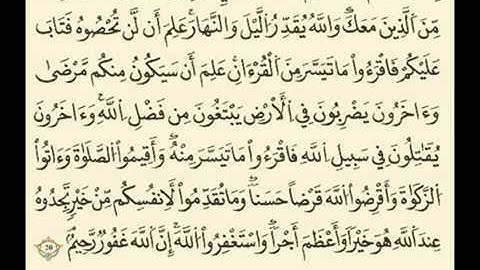 مِّنَ ٱلَّذِينَ مَعَكَۚ وَٱللَّهُ يُقَدِّرُ ٱلَّيۡلَ وَٱلنَّهَارَۚ عَلِمَ أَن لَّن تُحۡصُوهُ فَتَابَ
عَلَيۡكُمۡۖ فَٱقۡرَءُواْ مَا تَيَسَّرَ مِنَ ٱلۡقُرۡءَانِۚ عَلِمَ أَن سَيَكُونُ مِنكُم مَّرۡضَىٰ
وَءَاخَرُونَ يَضۡرِبُونَ فِي ٱلۡأَرۡضِ يَبۡتَغُونَ مِن فَضۡلِ ٱللَّهِ وَءَاخَرُونَ
يُقَٰتِلُونَ فِي سَبِيلِ ٱللَّهِۖ فَٱقۡرَءُواْ مَا تَيَسَّرَ مِنۡهُۚ وَأَقِيمُواْ ٱلصَّلَوٰةَ وَءَاتُواْ
ٱلزَّكَوٰةَ وَأَقۡرِضُواْ ٱللَّهَ قَرۡضًا حَسَنٗاۚ وَمَا تُقَدِّمُواْ لِأَنفُسِكُم مِّنۡ خَيۡرٖ تَجِدُوهُ
عِندَ ٱللَّهِ هُوَ خَيۡرٗا وَأَعۡظَمَ أَجۡرٗاۚ وَٱسۡتَغۡفِرُواْ ٱللَّهَۖ إِنَّ ٱللَّهَ غَفُورٞ رَّحِيمُۢ ٢٠